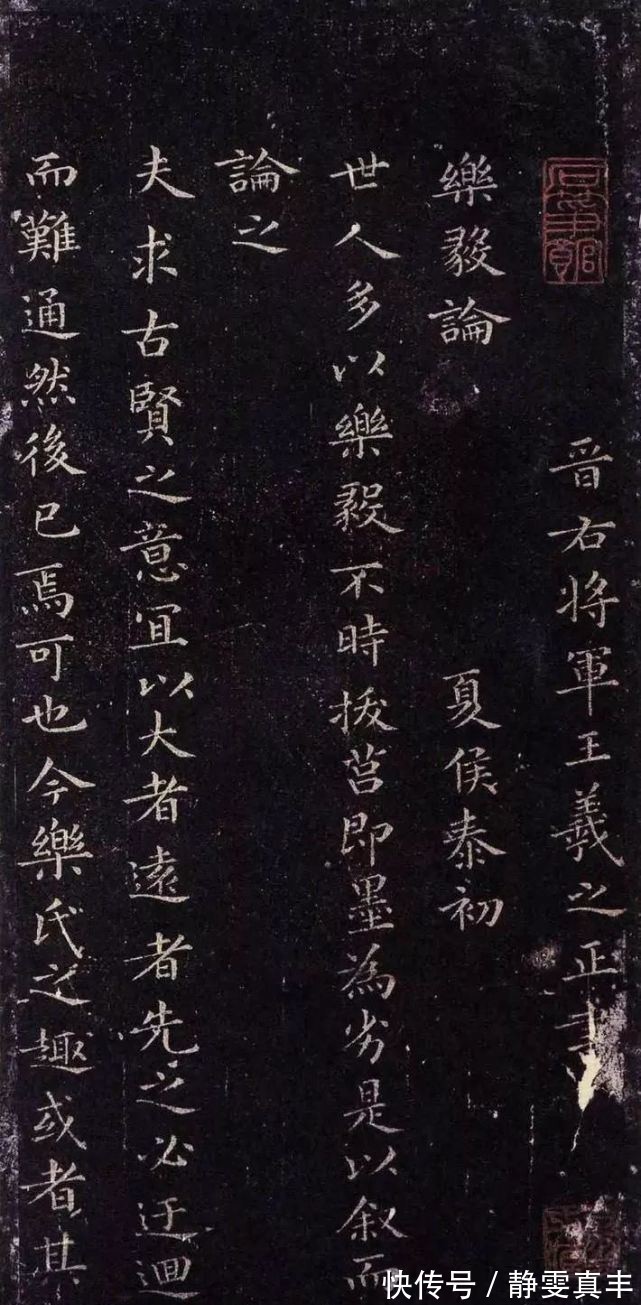 晉右將軍王羲之正書
樂毅論
夏侯泰初
世人多以樂毅不時拔莒即墨為劣是以叙而
論之
夫求古賢之意宜以大者遠者先之必迂迴
而難通然後已焉可也今樂氏之趣或者其
快传号/静雯真丰